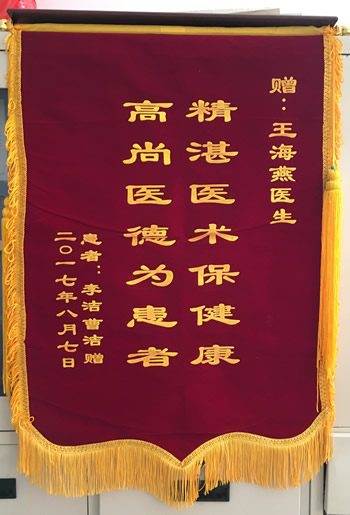 赠：王海燕医生
精湛医术保健康
高尚医德为患者
患者：李洁曹洁赠
二〇一七年八月七日